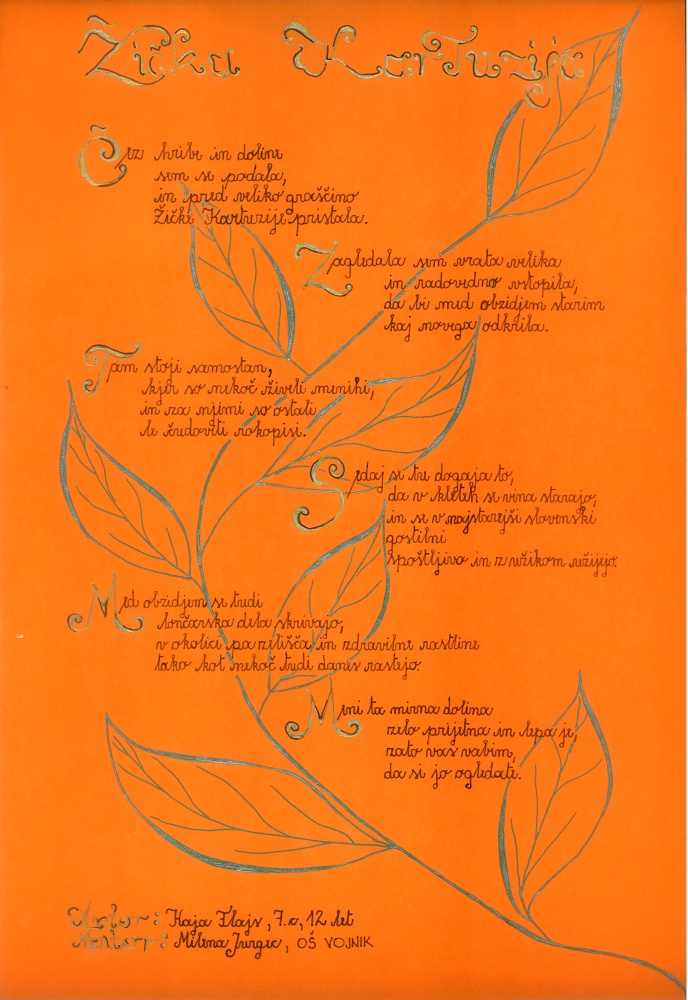 Žička Kartuzija
Čez hribe in doline
sem se podala,
in pred veliko graščino
Žičke Kartuzije pristala.
Zagledala sem vrata velika
in radovedno vstopila,
da bi med obzidjem starim
kaj novega odkrila.
Tam stoji samostan,
kjer so nekoč živeli menihi,
in za njimi so ostali
le čudoviti rokopisi.
Sedaj se tu dogaja to,
da v kleteh se vina starajo,
in se v najstarejši slovenski
gostilni
spoštljivo in z užitkom užijejo.
Med obzidjem se tudi
lončarska dela skrivajo,
v okolici pa zelišča in zdravilne rastline
tako kot nekoč tudi danes rastejo.
Meni ta mirna dolina
zelo prijetna in lepa je,
zato vas vabim,
da si jo ogledate.
Avtor: Kaja Flajs, 7.c, 12 let
Mentor: Milena Jurgec, OŠ VOJNIK